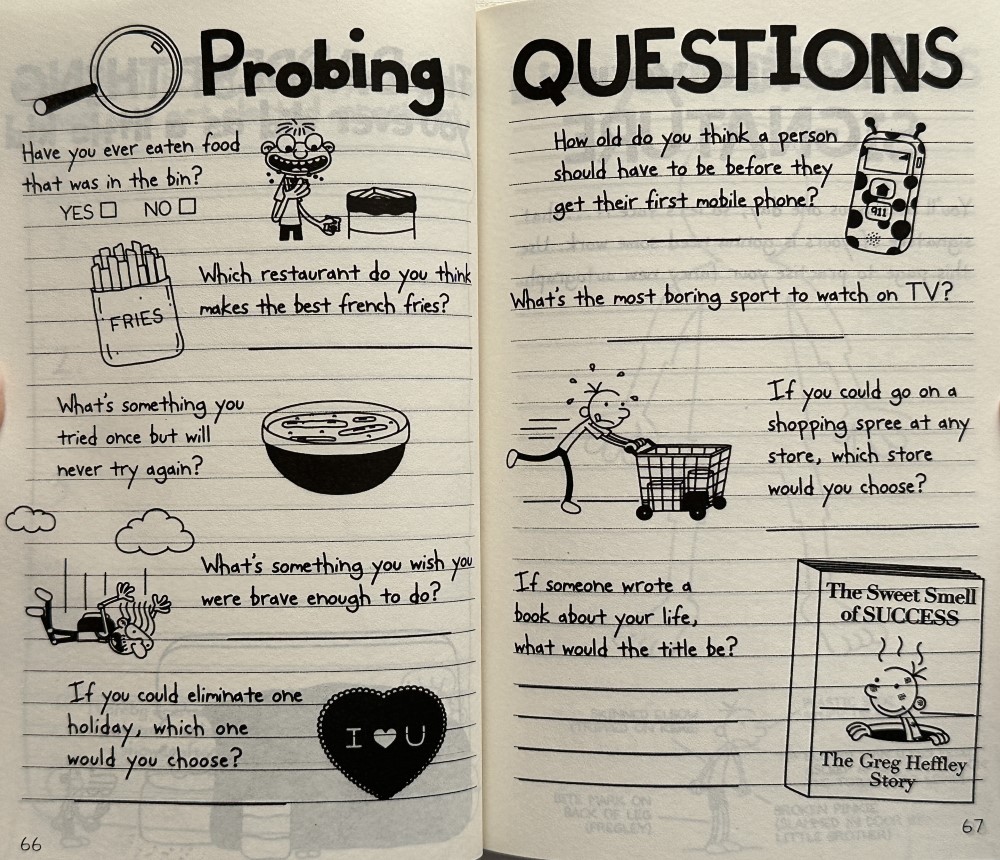 Probing
Have you ever eaten food
that was in the bin?
YES NO
FRIES
Which restaurant do you think
makes the best french fries?
What's something you
tried once but will
never try again?
What's something you wish you
were brave enough to do?
If you could eliminate one
holiday, which one
would you choose?
I U
66
QUESTIONS
How old do you think a person
should have to be before they
get their first mobile phone?
911
What's the most boring sport to watch on TV?
If you could go on a
shopping spree at any
store, which store
would you choose?
If someone wrote a
book about your life,
what would the title be?
The Sweet Smell
of SUCCESS
The Greg Heffley
Story
67